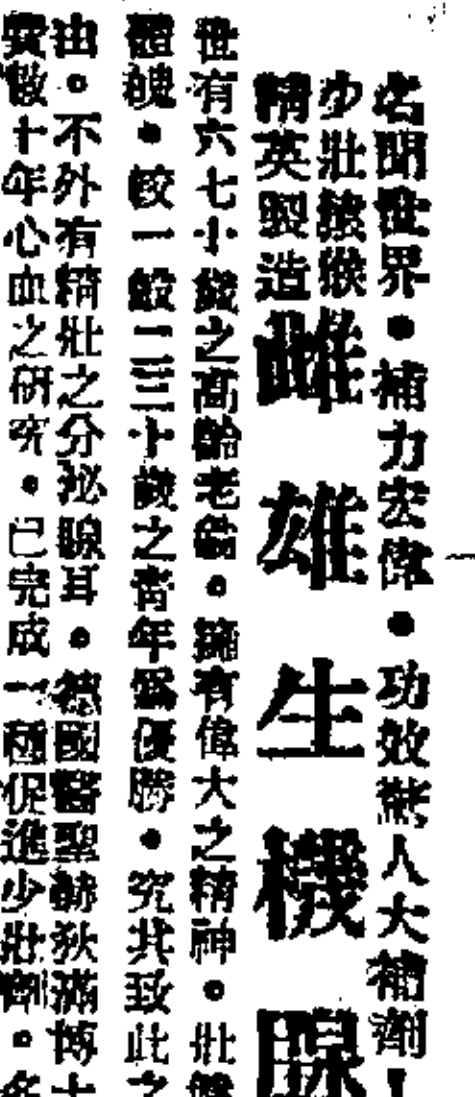 名聞世界。補力宏偉。功效驚人大補劑!
少壯猿猴
精英製造
雌雄生機腺
世有六七十歲之高齡老翁。擁有偉大之精神。壯健
體魄。較一般二三十歲之青年為優勝。究其致此之
由。不外有精壯之分泌腺耳。德國醫聖赫狄滿博士
費數十年心血之研究。已完成一種促進少壯劑。名